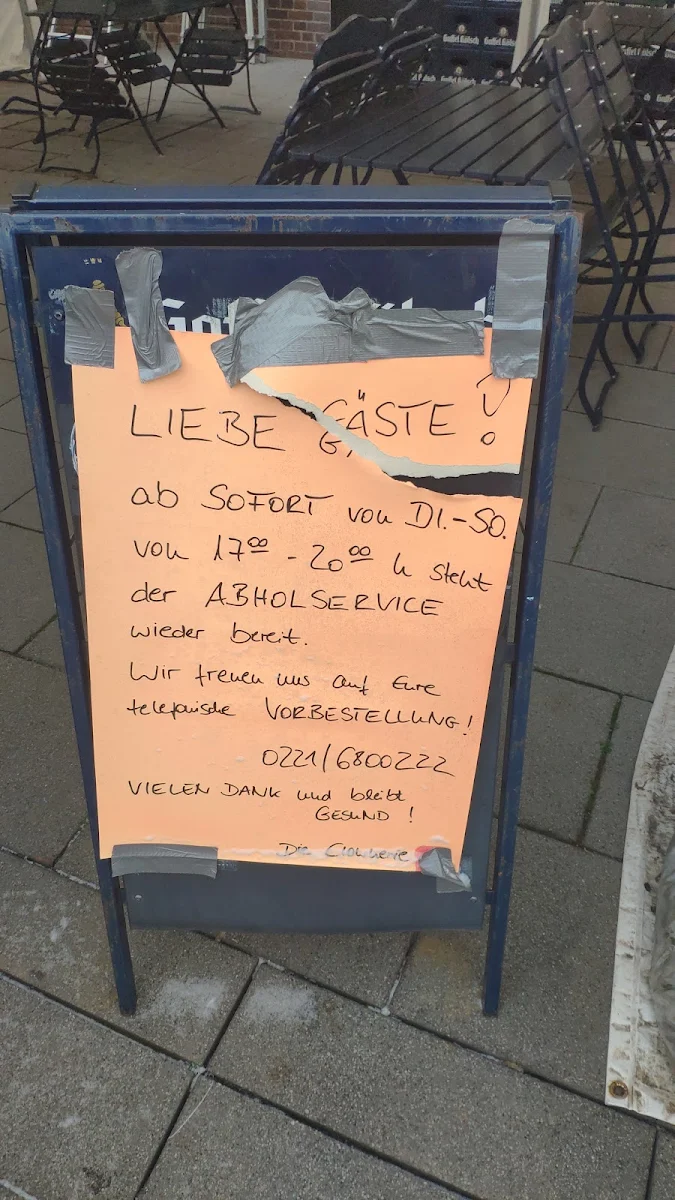 Gaffel Kölsch
Gaffel Kölsch
LIEBE GÄSTE!
ab SOFORT von DI.-SO.
von 17⁰⁰ - 20⁰⁰ h steht
der ABHOLSERVICE
wieder bereit.
Wir freuen uns auf Eure
telefonische VORBESTELLUNG!
0221/6800222
VIELEN DANK und bleibt
GESUND!
Die